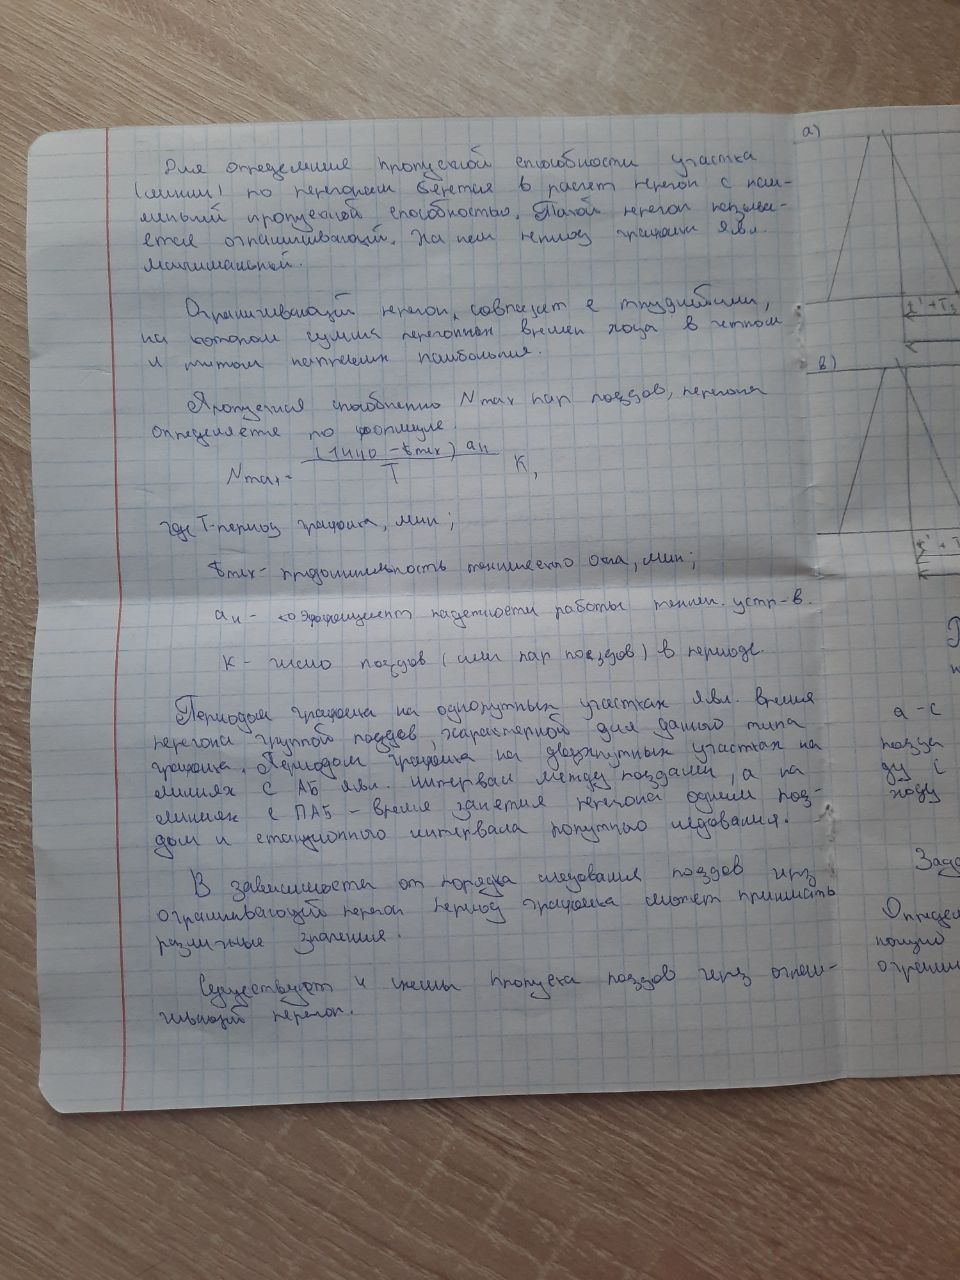 Для определения пропускной способности участка
(линии) по перегонам берется в расчет перегон с наи-
меньшей пропускной способностью. Такой перегон называ-
ется ограничивающий. На нем период графика явл.
максимальной.
Ограничивающий перегон, совпадает с труднейшим,
на котором сумма перегонных времен хода в четном
и нечетном направлениях наибольшая.
Пропускная способность Nmax пар поездов, перегона
определяется по формуле
Nmax = (1440 - tтех) aн / T K,
где T - период графика, мин;
tтех - продолжительность технического окна, мин;
aн - коэффициент надежности работы технич. устр-в.
K - число поездов (или пар поездов) в периоде.
Периодом графика на однопутных участках явл. время
перегона группой поездов, характерной для данного типа
графика. Периодом графика на двухпутных участках на
линиях с АБ явл. интервал между поездами, а на
линиях с ПАБ - время занятия перегона одним поез-
дом и станционного интервала попутного следования.
В зависимости от порядка следования поездов чрз
ограничивающий перегон период графика может принимать
различные значения.
Существуют 4 схемы пропуска поездов чрз ограни-
чивающий перегон.
а)
t' + T
в)
t' + T
а - с
поезда
ду с
ходу
Зада
Определ
ограни